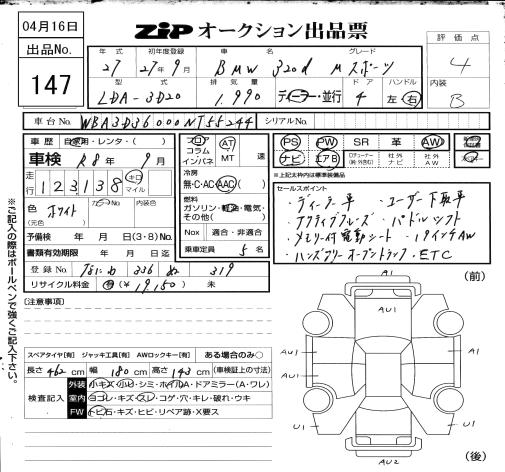 04月16日
ZIP オークション出品票
出品No.
147
年式 初年度登録 車名 グレード
27 27年9月 BMW 320d Mスポーツ
型式 排気量 ドア ハンドル
LDA-3D20 1,990 ディーラー・並行 4 左 右
評価点
4
内装
B
車台No. WBA3D36000NT55244 シリアルNo.
車歴 自家用・レンタ・( )
車検 R8年9月
走行 123,138 キロ マイル
色 ホワイト 内装色
(元色)
予備検 年 月 日(3・8)No.
書類有効期限 年 月 日
登録No. 336 319
リサイクル料金 有(¥19,150) 未
フロア コラム インパネ AT MT 速
冷房
無・C・AC・AAC( )
燃料
ガソリン・軽油・電気・その他( )
Nox 適合・非適合
乗車定員 5名
PS PW SR 革 AW
ナビ エアB 社外ナビ 社外AW
※上記太枠は標準装備品
セールスポイント
・ディーラー車 ・ユーザー下取車
・アクティブクルーズ ・パドルシフト
・メモリー付電動シート ・19インチAW
・ハンズフリーオープントランク ・ETC
※ご記入の際はボールペンで強くご記入下さい。
[注意事項]
スペアタイヤ[有] ジャッキ工具[有] AWロックキー[有] ある場合のみ○
長さ 462 cm 幅 180 cm 高さ 143 cm (車検証上の寸法)
検査記入
外装 小キズ・小ヒ・シミ・ホイルA・ドアミラー(A・ワレ)
室内 ヨゴレ・キズ・スレ・コゲ・穴・キレ・破れ・ウキ
FW トビ石・キズ・ヒビ・リペア跡・X要ス
(前)
A1
AU1
AU1
A1
AU1
U1
U1
AU2
(後)